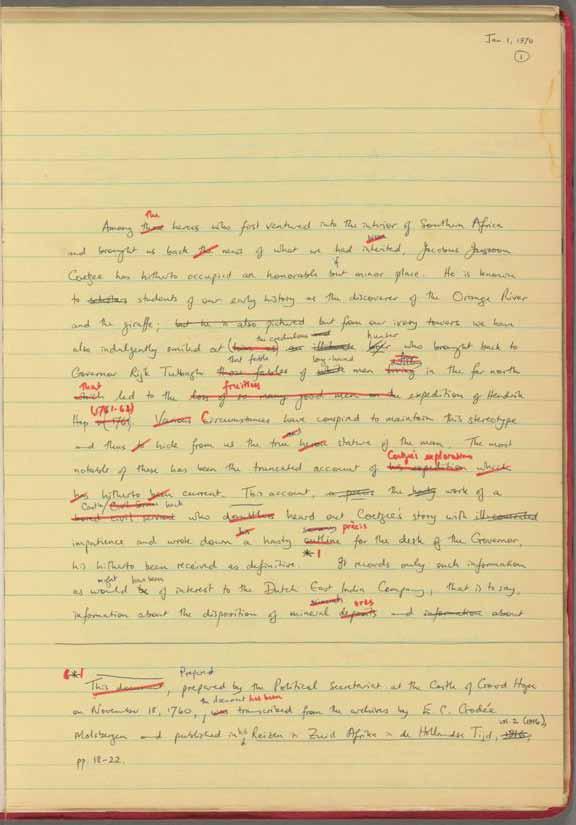 Jan 1, 1970
1
the
Among those heroes who first ventured into the interior of Southern Africa
and brought us back the news of what we had inherited, Jacobus Janszoon
Coetzee has hitherto occupied an honorable but minor place. He is known
to scholars students of our early history as the discoverer of the Orange River
and the giraffe; but he is also pictured but from our ivory towers we have
the credulous hunter
also indulgently smiled at who brought back to
that fable long-haired
Governor Rijk Tulbagh those fables of white men living in the far north
that fruitless
which led to the loss of so many good men on the expedition of Hendrik
(1761-62)
Hop (1761). Various Circumstances have conspired to maintain this stereotype
and thus to hide from us the true heroic stature of the man. The most
Coetzee's explorations
notable of these has been the truncated account of his expedition which
has hitherto been current. This account, the work of a
Castle hack
bored civil servant who doubtless heard out Coetzee's story with ill-concealed
précis
impatience and wrote down a hasty outline for the desk of the Governor,
*1
has hitherto been received as definitive. It records only such information
might have been
as would be of interest to the Dutch East India Company, that is to say,
ores
information about the disposition of mineral deposits and information about
*1
Prepared
This document, prepared by the Political Secretariat at the Castle of Good Hope
the document has been
on November 18, 1760, was transcribed from the archives by E. C. Godée
vol. 2 (1916),
Molsbergen and published in his Reizen in Zuid Afrika in de Hollandse Tijd, 1916,
pp. 18-22.